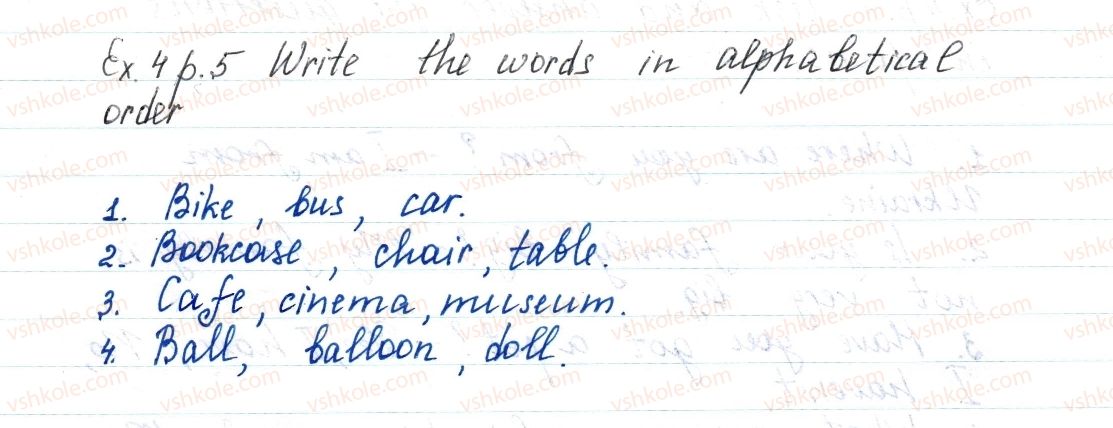 Ex. 4 p. 5 Write the words in alphabetical
order
1. Bike, bus, car.
2. Bookcase, chair, table.
3. Cafe, cinema, museum.
4. Ball, balloon, doll.